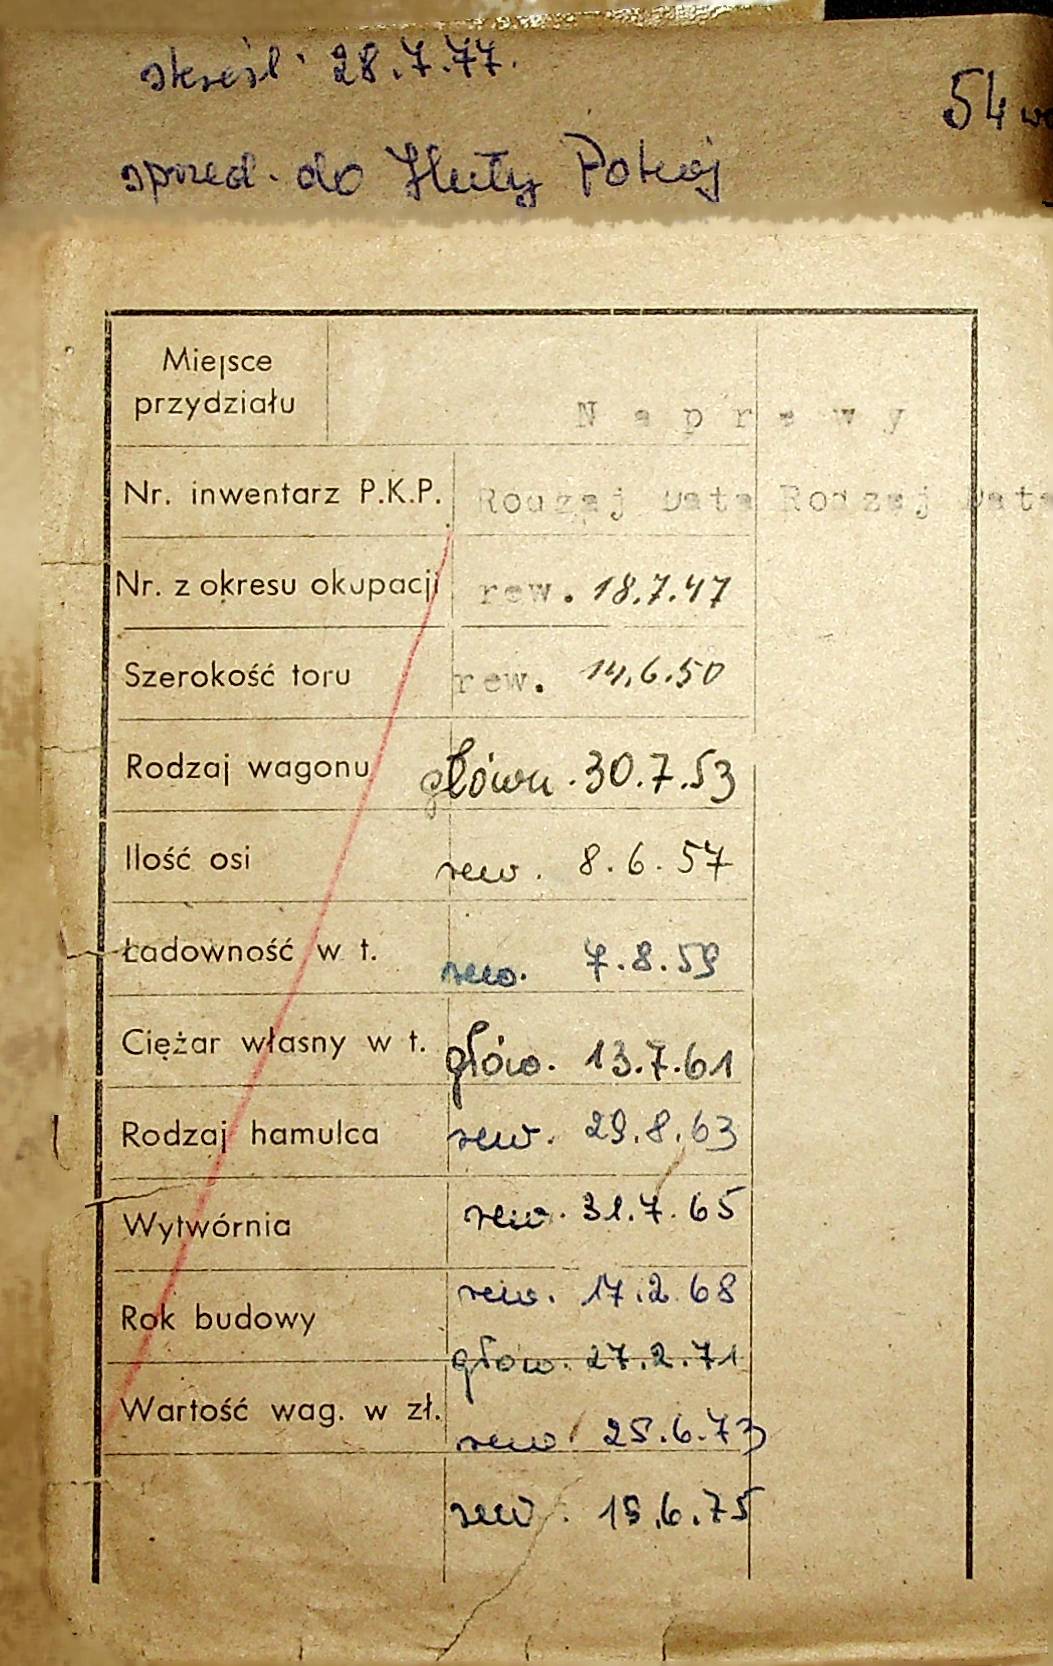 skreśl. 28.7.77.
54
sprzed. do Huty Pokój
Miejsce
przydziału
Naprawy
Nr. inwentarz P.K.P. Rodzaj Data Rodzaj Data
Nr. z okresu okupacji rew. 18.7.47
Szerokość toru rew. 14.6.50
Rodzaj wagonu główn. 30.7.53
Ilość osi rew. 8.6.57
Ładowność w t. rew. 7.8.59
Ciężar własny w t. głów. 13.7.61
Rodzaj hamulca rew. 29.8.63
Wytwórnia rew. 31.7.65
rew. 17.2.68
Rok budowy
głow. 27.2.71
Wartość wag. w zł.
rew. 25.6.73
rew. 19.6.75